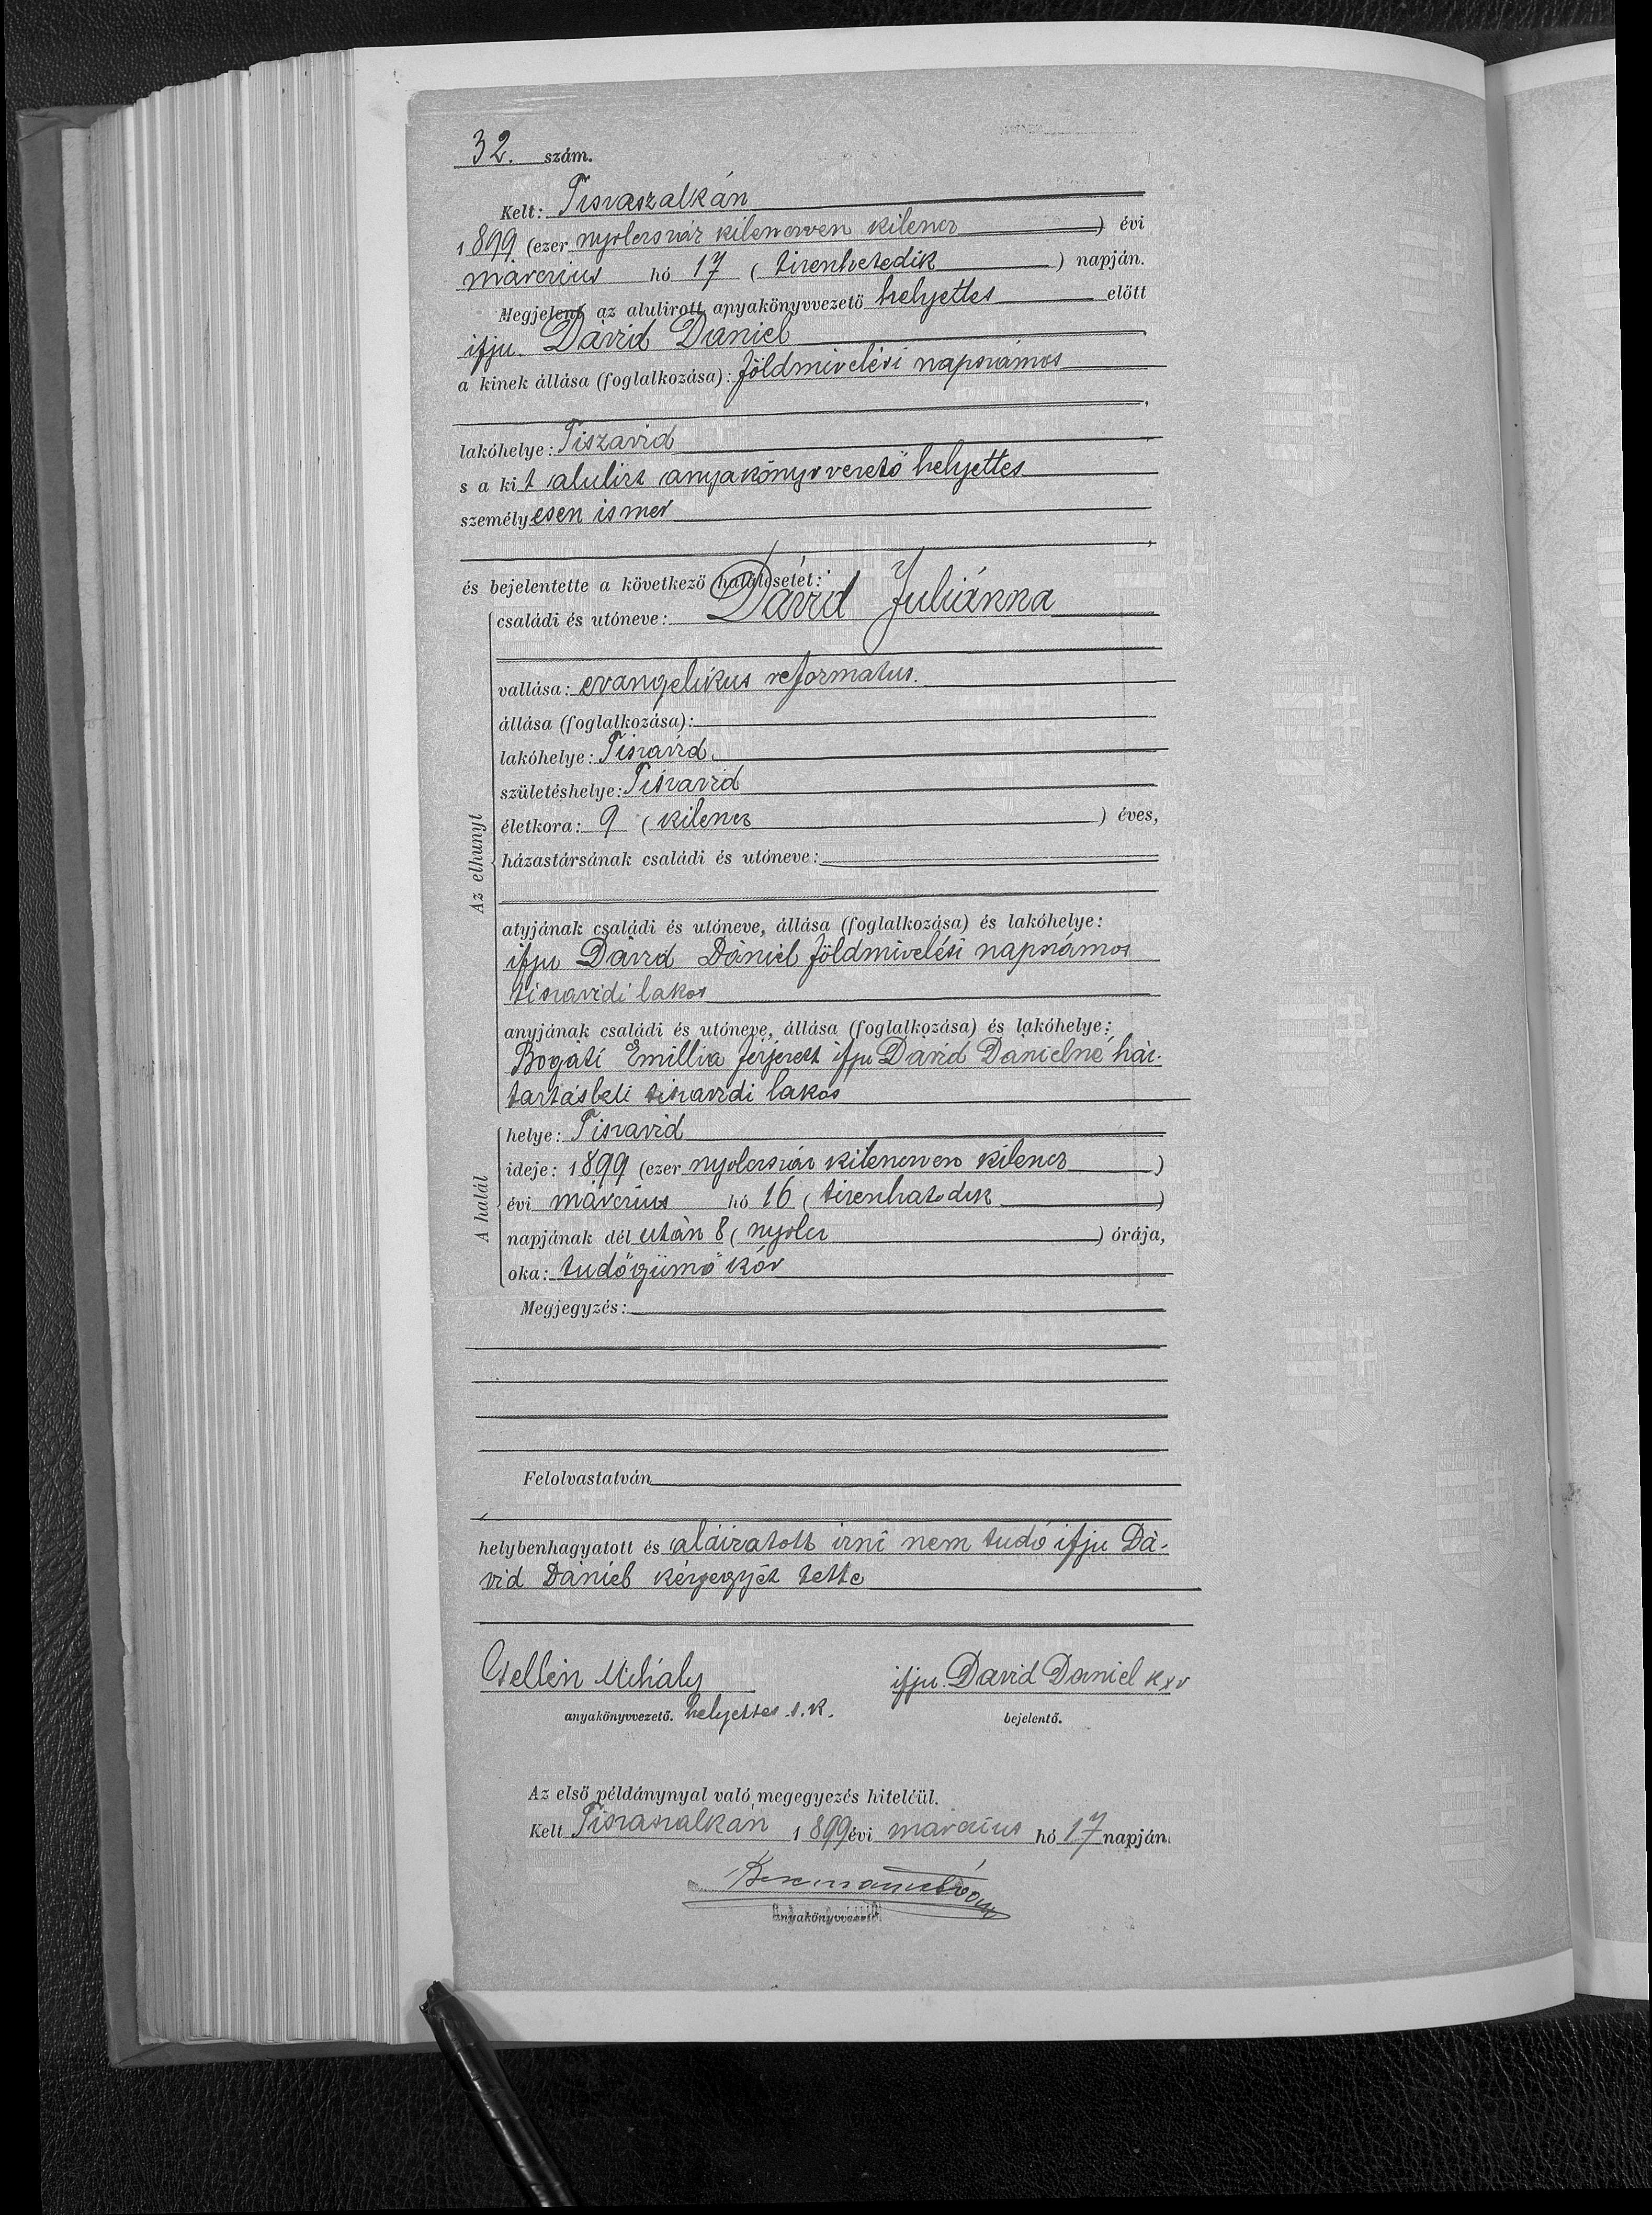 32. szám.
Kelt: Tiszaszalkán
1899 (ezer nyolczszáz kilenczven kilencz) évi
márczius hó 17 (tizenhetedik) napján.
Megjelent az alulirott anyakönyvvezető helyettes előtt
ifju. Dávid Dániel
a kinek állása (foglalkozása): földmivelési napszámos
lakóhelye: Tiszavid
s a kit alulirt anyakönyvvezető helyettes
személyesen ismer
és bejelentette a következő halálesetet:
Az elhunyt
családi és utóneve: Dávid Juliánna
vallása: evangelikus reformatus.
állása (foglalkozása):
lakóhelye: Tiszavid
születéshelye: Tiszavid
életkora: 9 (kilencz) éves,
házastársának családi és utóneve:
atyjának családi és utóneve, állása (foglalkozása) és lakóhelye:
ifju Dávid Dániel földmivelési napszámos
tiszavidi lakos
anyjának családi és utóneve, állása (foglalkozása) és lakóhelye:
Bogáti Emillia férjezett ifju Dávid Dánielné ház-
tartásbeli tiszavidi lakos
A halál
helye: Tiszavid
ideje: 1899 (ezer nyolczszáz kilenczven kilencz)
évi márczius hó 16 (tizenhatodik)
napjának dél után 8 (nyolcz) órája,
oka: tudőgümő kór
Megjegyzés:
Felolvastatván
,
helybenhagyatott és aláiratott irni nem tudó ifju Dá-
vid Dániel kézjegyét tette
Gellén Mihály ifju. Dávid Dániel k x v
anyakönyvvezető. helyettes s.k. bejelentő.
Az első példánynyal való megegyezés hiteléül.
Kelt Tiszaszalkán 1899 évi márczius hó 17 napján
anyakönyvvezető